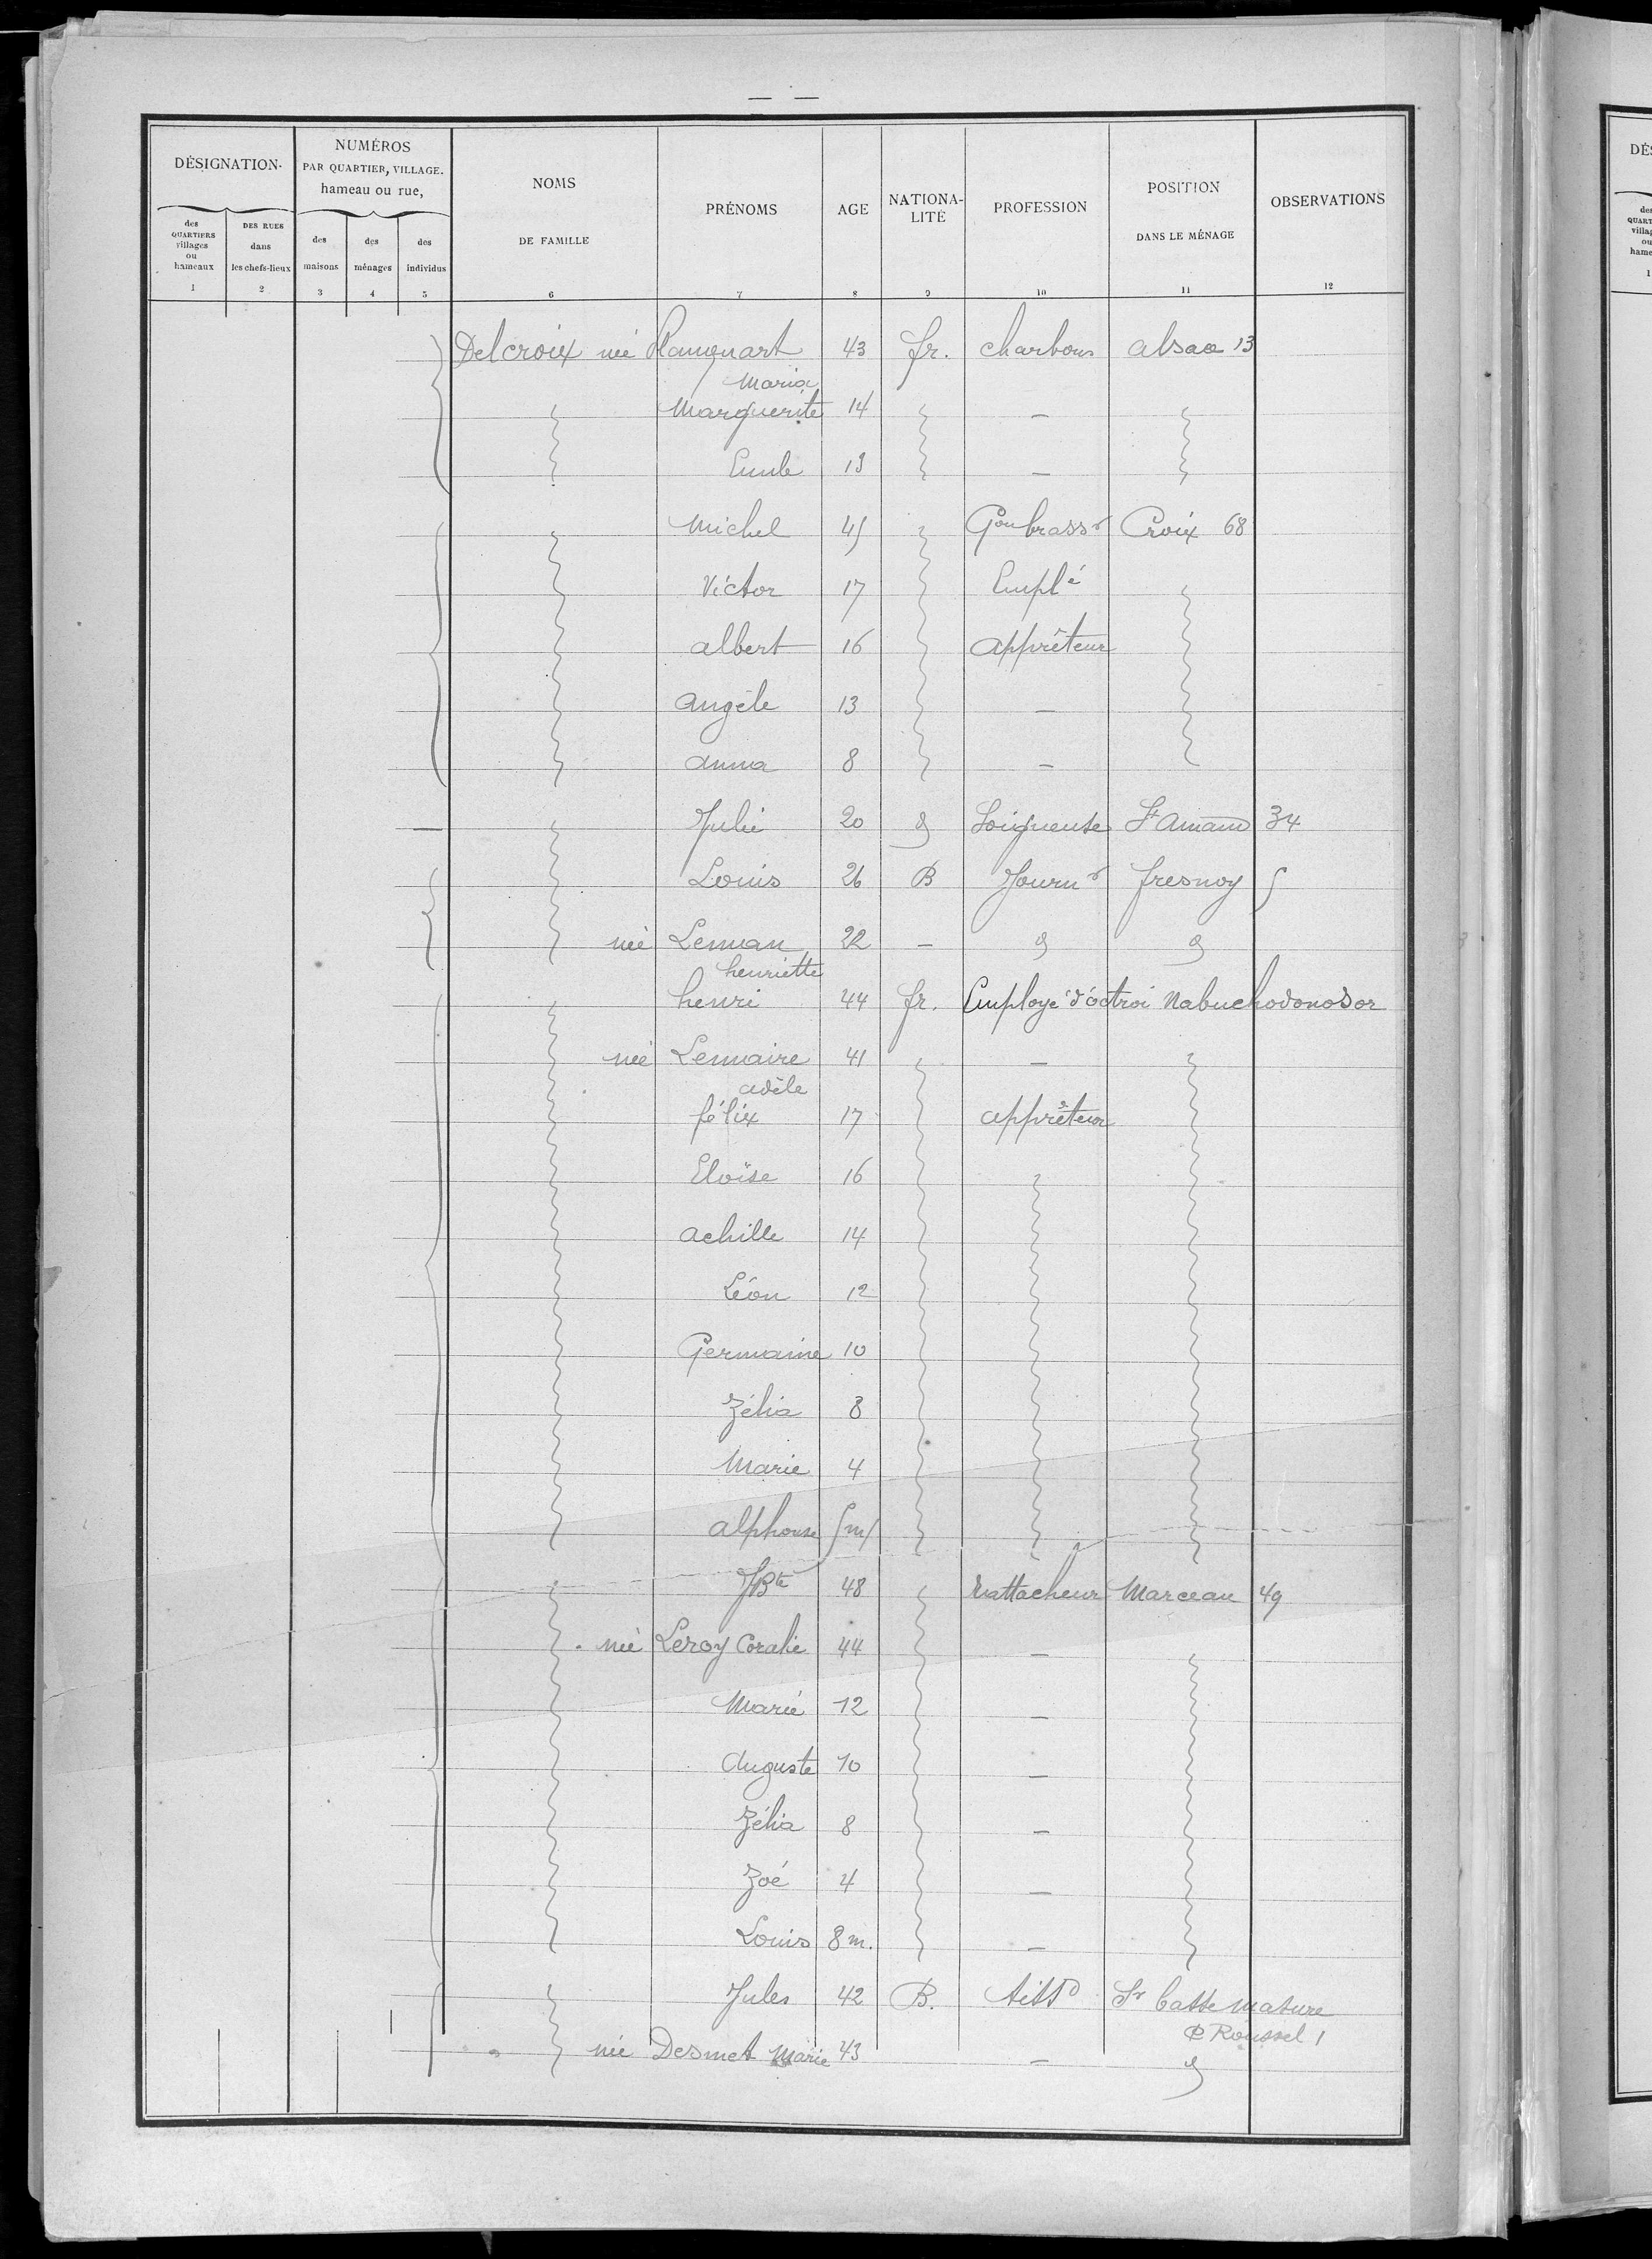 DÉSIGNATION
NUMÉROS
PAR QUARTIER, VILLAGE.
hameau ou rue,
NOMS
DE FAMILLE
PRÉNOMS
AGE
NATIONA-
LITÉ
PROFESSION
POSITION
DANS LE MÉNAGE
OBSERVATIONS
des
QUARTIERS
villages
ou
hameaux
DES RUES
dans
les chefs-lieux
des
maisons
des
ménages
des
individus
1 2 3 4 5 6 7 8 9 10 11 12
Delcroix née Planquart 43 fr. charbons alsace 13
Maria
Marguerite 14 —
Emile 13 —
Michel 45 Gon brassr Croix 68
Victor 17 Emplé
albert 16 apprêteur
angèle 13 —
anna 8 —
— Julie 20 Soigneuse St Amand 34
Louis 26 B Journr fresnoy 5
née Leman 22 —
henriette
henri 44 fr. Employé d'octroi Nabuchodonosor
née Lemaire 41 —
adèle
félix 17 apprêteur
Eloïse 16
achille 14
Léon 12
Germaine 10
Zélia 8
Marie 4
alphonse 5 m
JBte 48 rattacheur Marceau 49
née Leroy Coralie 44 —
Marie 12 —
Auguste 10 —
Zélia 8 —
Zoé 4 —
Louis 8 m. —
Jules 42 B. tissd St Casse mature
C Roussel 1
née Desmet Marie 43 —